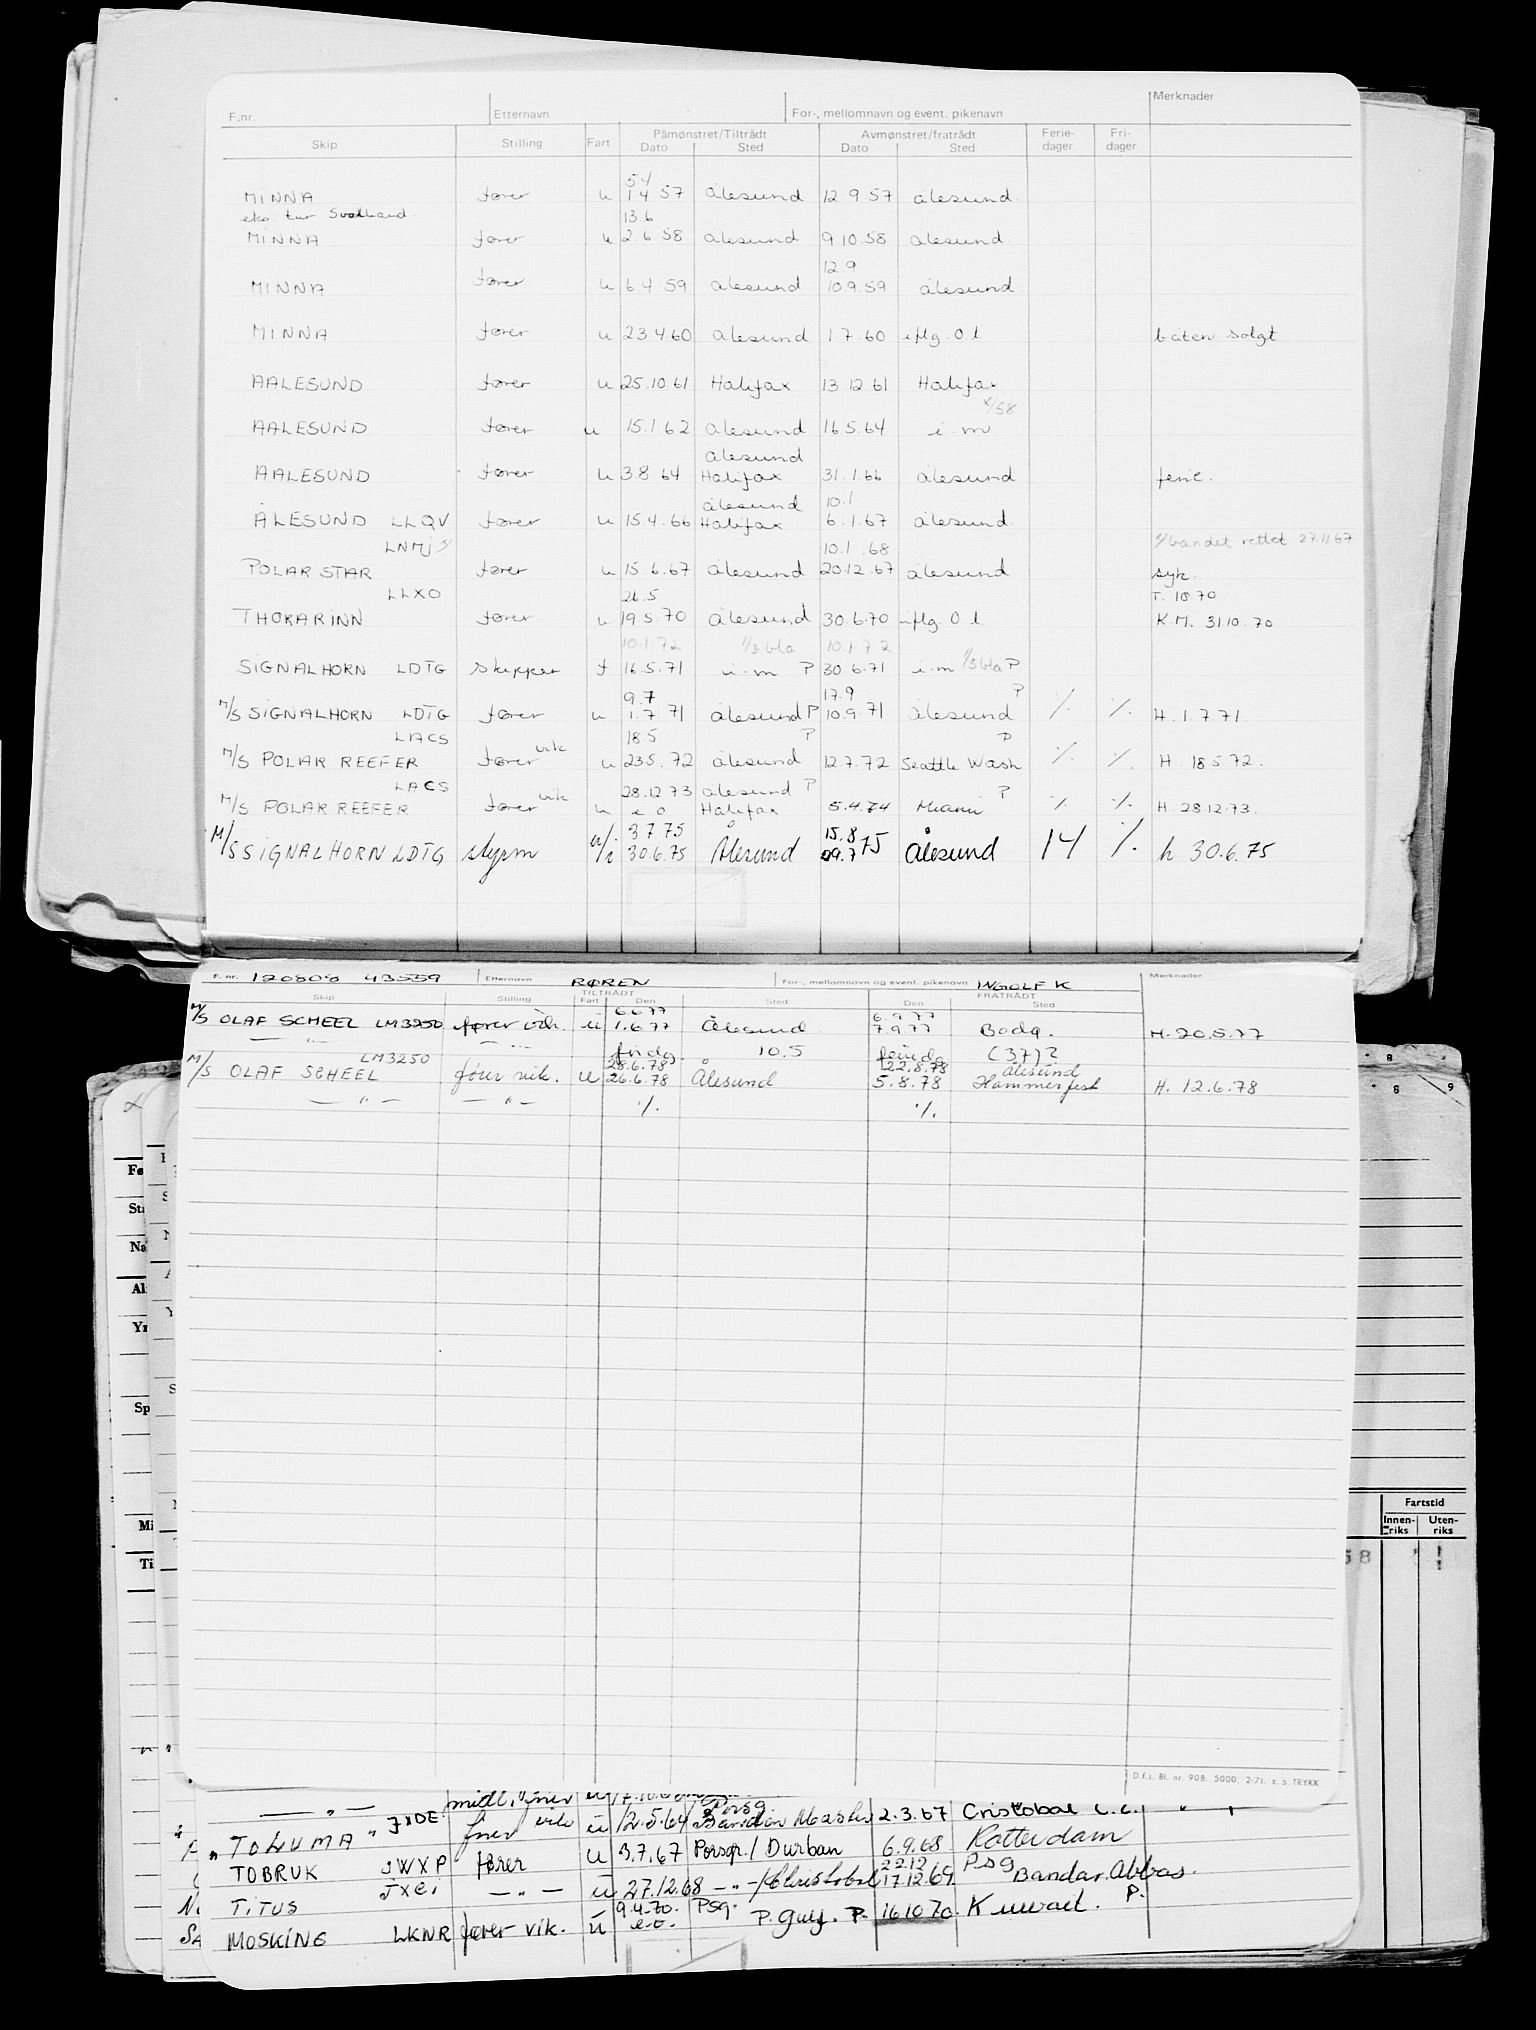 F.nr. Etternavn For-, mellomnavn og event. pikenavn Merknader
Skip Stilling Fart Påmønstret/Tiltrådt Avmønstret/fratrådt Ferie- Fri-
Dato Sted Dato Sted dager dager
5 4
MINNA fører u 1 4 57 Ålesund 12 9 57 Ålesund
eks. tur Svalbard 13.6
MINNA fører u 2.6.58 Ålesund 9 10.58 Ålesund
12.9
MINNA fører u 6 4 59 Ålesund 10.9.59 Ålesund
MINNA fører u 23 4.60 Ålesund 1 7.60 iflg. O l båten solgt
AALESUND fører u 25.10 61 Halifax 13 12.61 Halifax
4/58
AALESUND fører u 15.1 62 Ålesund 16 5.64 i. m
Ålesund
AALESUND fører u 3.8.64 Halifax 31.1.66 Ålesund ferie.
Ålesund 10.1
ÅLESUND LLQV fører u 15.4.66 Halifax 6.1.67 Ålesund
LNMJ 10.1.68 båndet rettet 27.11.67
POLAR STAR fører u 15.6.67 Ålesund 20.12.67 Ålesund syk.
LLXO 26.5 T. 10 70
THORARINN fører u 19 5.70 Ålesund 30.6.70 iflg. O l K.M. 31.10.70
10.1.72 1/3 blå 10.1.72
SIGNALHORN LDTG skipper f 16.5.71 i.m P 30.6.71 i.m 1/3 blå P
9.7 17.9 P
M/S SIGNALHORN LDTG fører u 1.7.71 Ålesund P 10.9.71 Ålesund ⁒ ⁒ H. 1.7 71.
LACS 18.5 P P
M/S POLAR REEFER fører vik u 23.5.72 Ålesund 12.7.72 Seattle Wash ⁒ ⁒ H. 18 5 72.
LACS 28.12 73 Ålesund P P
M/S POLAR REEFER fører vik u e o Halifax 5.4.74 Miami ⁒ ⁒ H. 28.12.73.
3 7 75 15.8
M/S SIGNALHORN LDTG styrm u/i 30.6.75 Ålesund 09.7 75 Ålesund 14 ⁒ h 30.6.75
F. nr. 120808 43559 Etternavn RØREN For-, mellomnavn og event. pikenavn INGOLF K Merknader
TILTRÅDT FRATRÅDT
Skip Stilling Fart Den Sted Den Sted
6.6.77 6.9.77
M/S OLAF SCHEEL LM3250 fører vik. u 1.6.77 Ålesund 7.9.77 Bodø. H. 20.5.77
— " — — " — fridg. 10.5 feriedg (37)?
LM3250 28.6.78 22.8.78 Ålesund
M/S OLAF SCHEEL fører vik. u 26.6.78 Ålesund 5.8.78 Hammerfest H. 12.6.78
— " — — " — ⁒ ⁒
D.f.s. Bl. nr. 90B. 5000. 2-71. E.S. TRYKK
Fø
Sta
Na
Al
Yr
Sp
Mi
Ti
8 9
8 9
Fartstid
Innen-riks Uten-riks
58
— " — midl. fører u
" TOLUMA " JXDE fører vik u 12.5.64 Porsg 2.3.67 Cristobal C.C.
TOBRUK JWXP fører u 3.7.67 Porsgr./ Durban 6.9.68 Rotterdam
22.12 Psg
TITUS — " — u 27.12.68 — " — / Christobal 17.12.69. Bandar Abbas.
9.4.70. Psg. P.
MOSKING LKNR fører vik. u e.o. P. Gulf. P. 16.10 70. Kuwait.